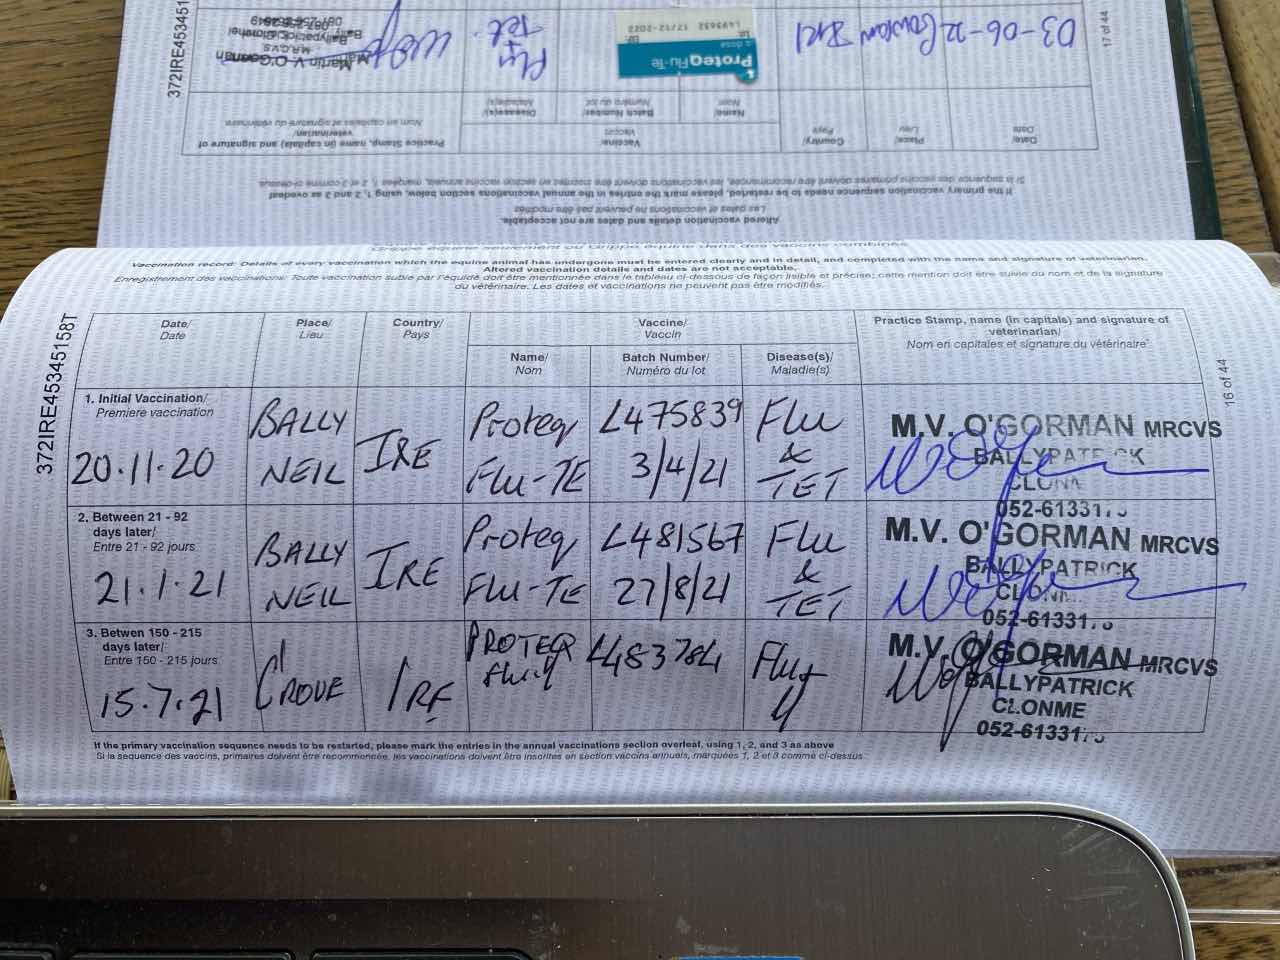 372IRE45345158T
Grippe équine seulement ou Grippe équine dans des vaccins combinés
Vaccination record: Details of every vaccination which the equine animal has undergone must be entered clearly and in detail, and completed with the name and signature of veterinarian.
Altered vaccination details and dates are not acceptable.
Enregistrement des vaccinations: Toute vaccination subie par l'équidé doit être mentionnée dans le tableau ci-dessous de façon lisible et précise; cette mention doit être suivie du nom et de la signature
du vétérinaire. Les dates et vaccinations ne peuvent pas être modifiés.
Date/ Place/ Country/ Vaccine/ Practice Stamp, name (in capitals) and signature of
Date Lieu Pays Vaccin veterinarian/
Nom en capitales et signature du vétérinaire
Name/ Batch Number/ Disease(s)/
Nom Numéro du lot Maladie(s)
1. Initial Vaccination/
Premiere vaccination
20.11.20
BALLY
NEIL
IRE
Proteq
Flu-TE
L475839
3/4/21
Flu
&
TET
M.V. O'GORMAN MRCVS
BALLYPATRICK
052-6133
2. Between 21 - 92
days later/
Entre 21 - 92 jours
21.1.21
BALLY
NEIL
IRE
Proteq
Flu-TE
L481567
27/8/21
Flu
&
TET
M.V. O'GORMAN MRCVS
BALLYPATRICK
052-6133
3. Betwen 150 - 215
days later/
Entre 150 - 215 jours
15.7.21
IRE
PROTEQ
L483784
Flu
M.V. O'GORMAN MRCVS
BALLYPATRICK
CLONME
052-6133
If the primary vaccination sequence needs to be restarted, please mark the entries in the annual vaccinations section overleaf, using 1, 2, and 3 as above
Si la sequence des vaccins, primaires doivent être recommencée, les vaccinations doivent être inscrites en section vaccins annuels, marquées 1, 2 et 3 comme ci-dessus
16 of 44
372IRE453451
Altered vaccination details and dates are not acceptable.
Les dates et vaccinations ne peuvent pas être modifiés
If the primary vaccination sequence needs to be restarted, please mark the entries in the annual vaccinations section below, using 1, 2 and 3 as
Si la sequence des vaccins primaires doivent être recommencée, les vaccinations doivent être inscrites en section vaccins annuels, marquées 1, 2 et 3 comme ci-dessus
Date/ Place/ Country/ Vaccine/ Practice Stamp, name (in capitals) and signature of
Date Lieu Pays Vaccin veterinarian/
Nom en capitales et signature du vétérinaire
Name/ Batch Number/ Disease(s)/
Nom Numéro du lot Maladie(s)
03-06-22
ProteqFlu-Te
1 dose
L495632 17/12/2022
Flu
Tet.
Martin V. O'Gorman
M.R.C.V.S.
Ballypatrick
17 of 44